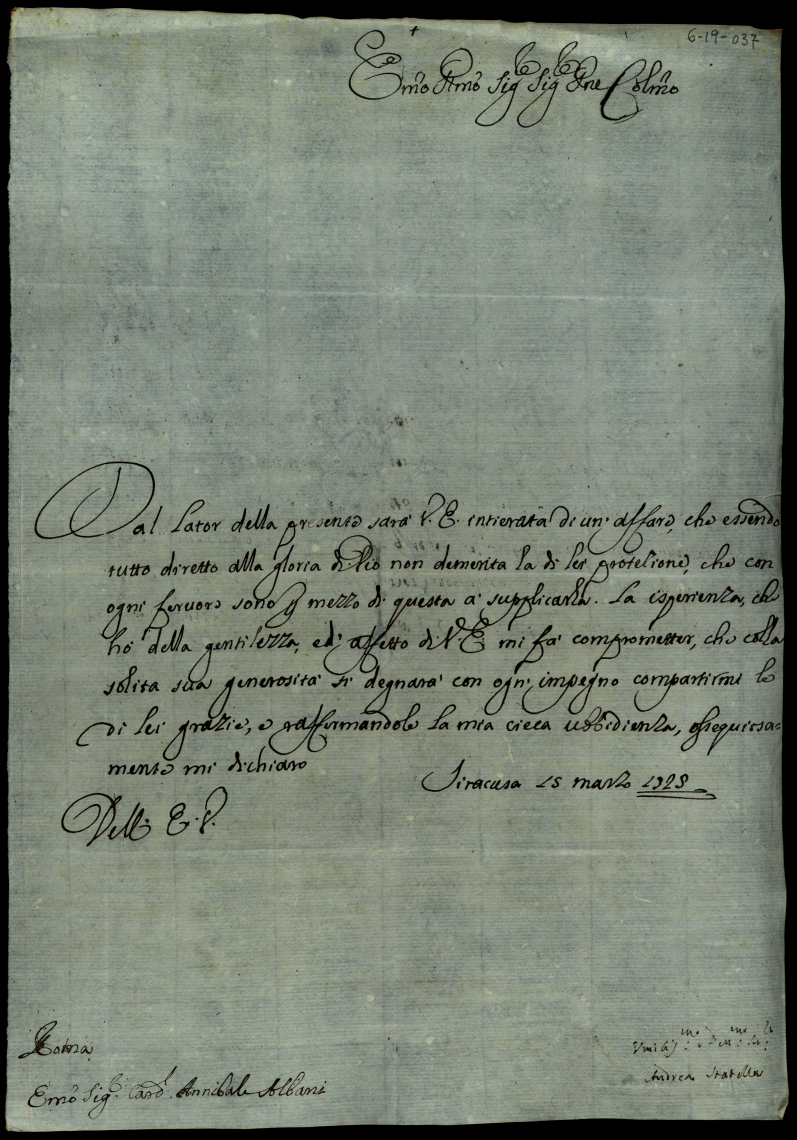 6-19-037
+
Emo Rmo Sig.re Sig.re Pne Colmo
Dal Lator della presente sarà V. E. intierata di un' affare, che essendo
tutto diretto alla gloria di Dio non demerita la di lei protetione, che con
ogni fervore sono p mezzo di questa a' supplicarla. La isperienza, che
hò della gentilezza, ed' affetto di V. E. mi fà comprometter, che colla
solita sua generosità si degnarà con ogni impegno compartirmi le
di lei grazie, e raffermandole la mia cieca ubbidienza, ossequiosa=
mente mi dichiaro
Siracusa 15 marzo 1725
Dell' E. V.
Roma
Emo Sig.r Card. Annibale Albani
Umilis.mo Dev.mo Ser.
Andrea Statella